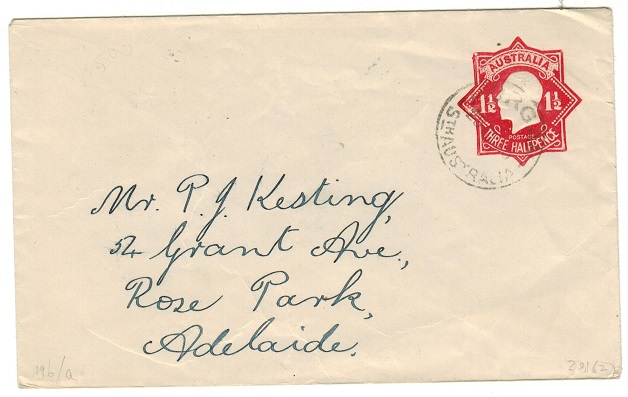 AUSTRALIA
1½ 1½
POSTAGE
THREE HALFPENCE
STH AUSTRALIA
Mr. P. J. Kesting,
54 Grant Ave.,
Rose Park,
Adelaide.
196/a